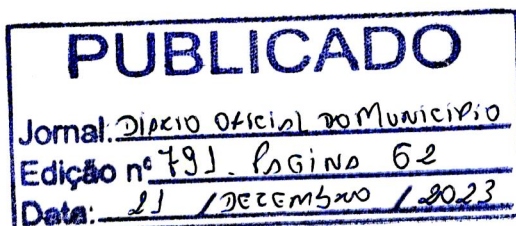 PUBLICADO
Jornal: DIÁRIO OFICIAL DO MUNICÍPIO
Edição nº 791. PÁGINA 62
Data: 21 / DEZEMBRO / 2023